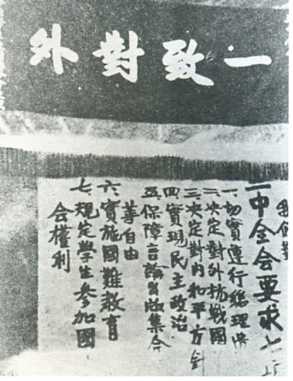 一致對外
中全会要求
一、切實遵行總理
二、決定對外抗戰國
三、決定對內和平方針
四實現民主政治
五保障言論出版集会
等自由
六實施國難教育
七規定學生參加國
会權利